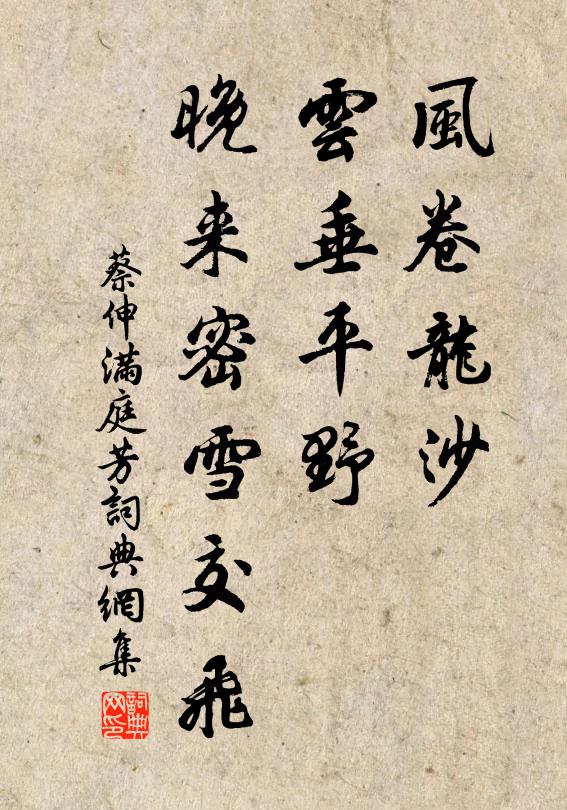 風卷龍沙
雲垂平野
晚来密雪交飛
蔡伸滿庭芳詞典網集
詞典网印